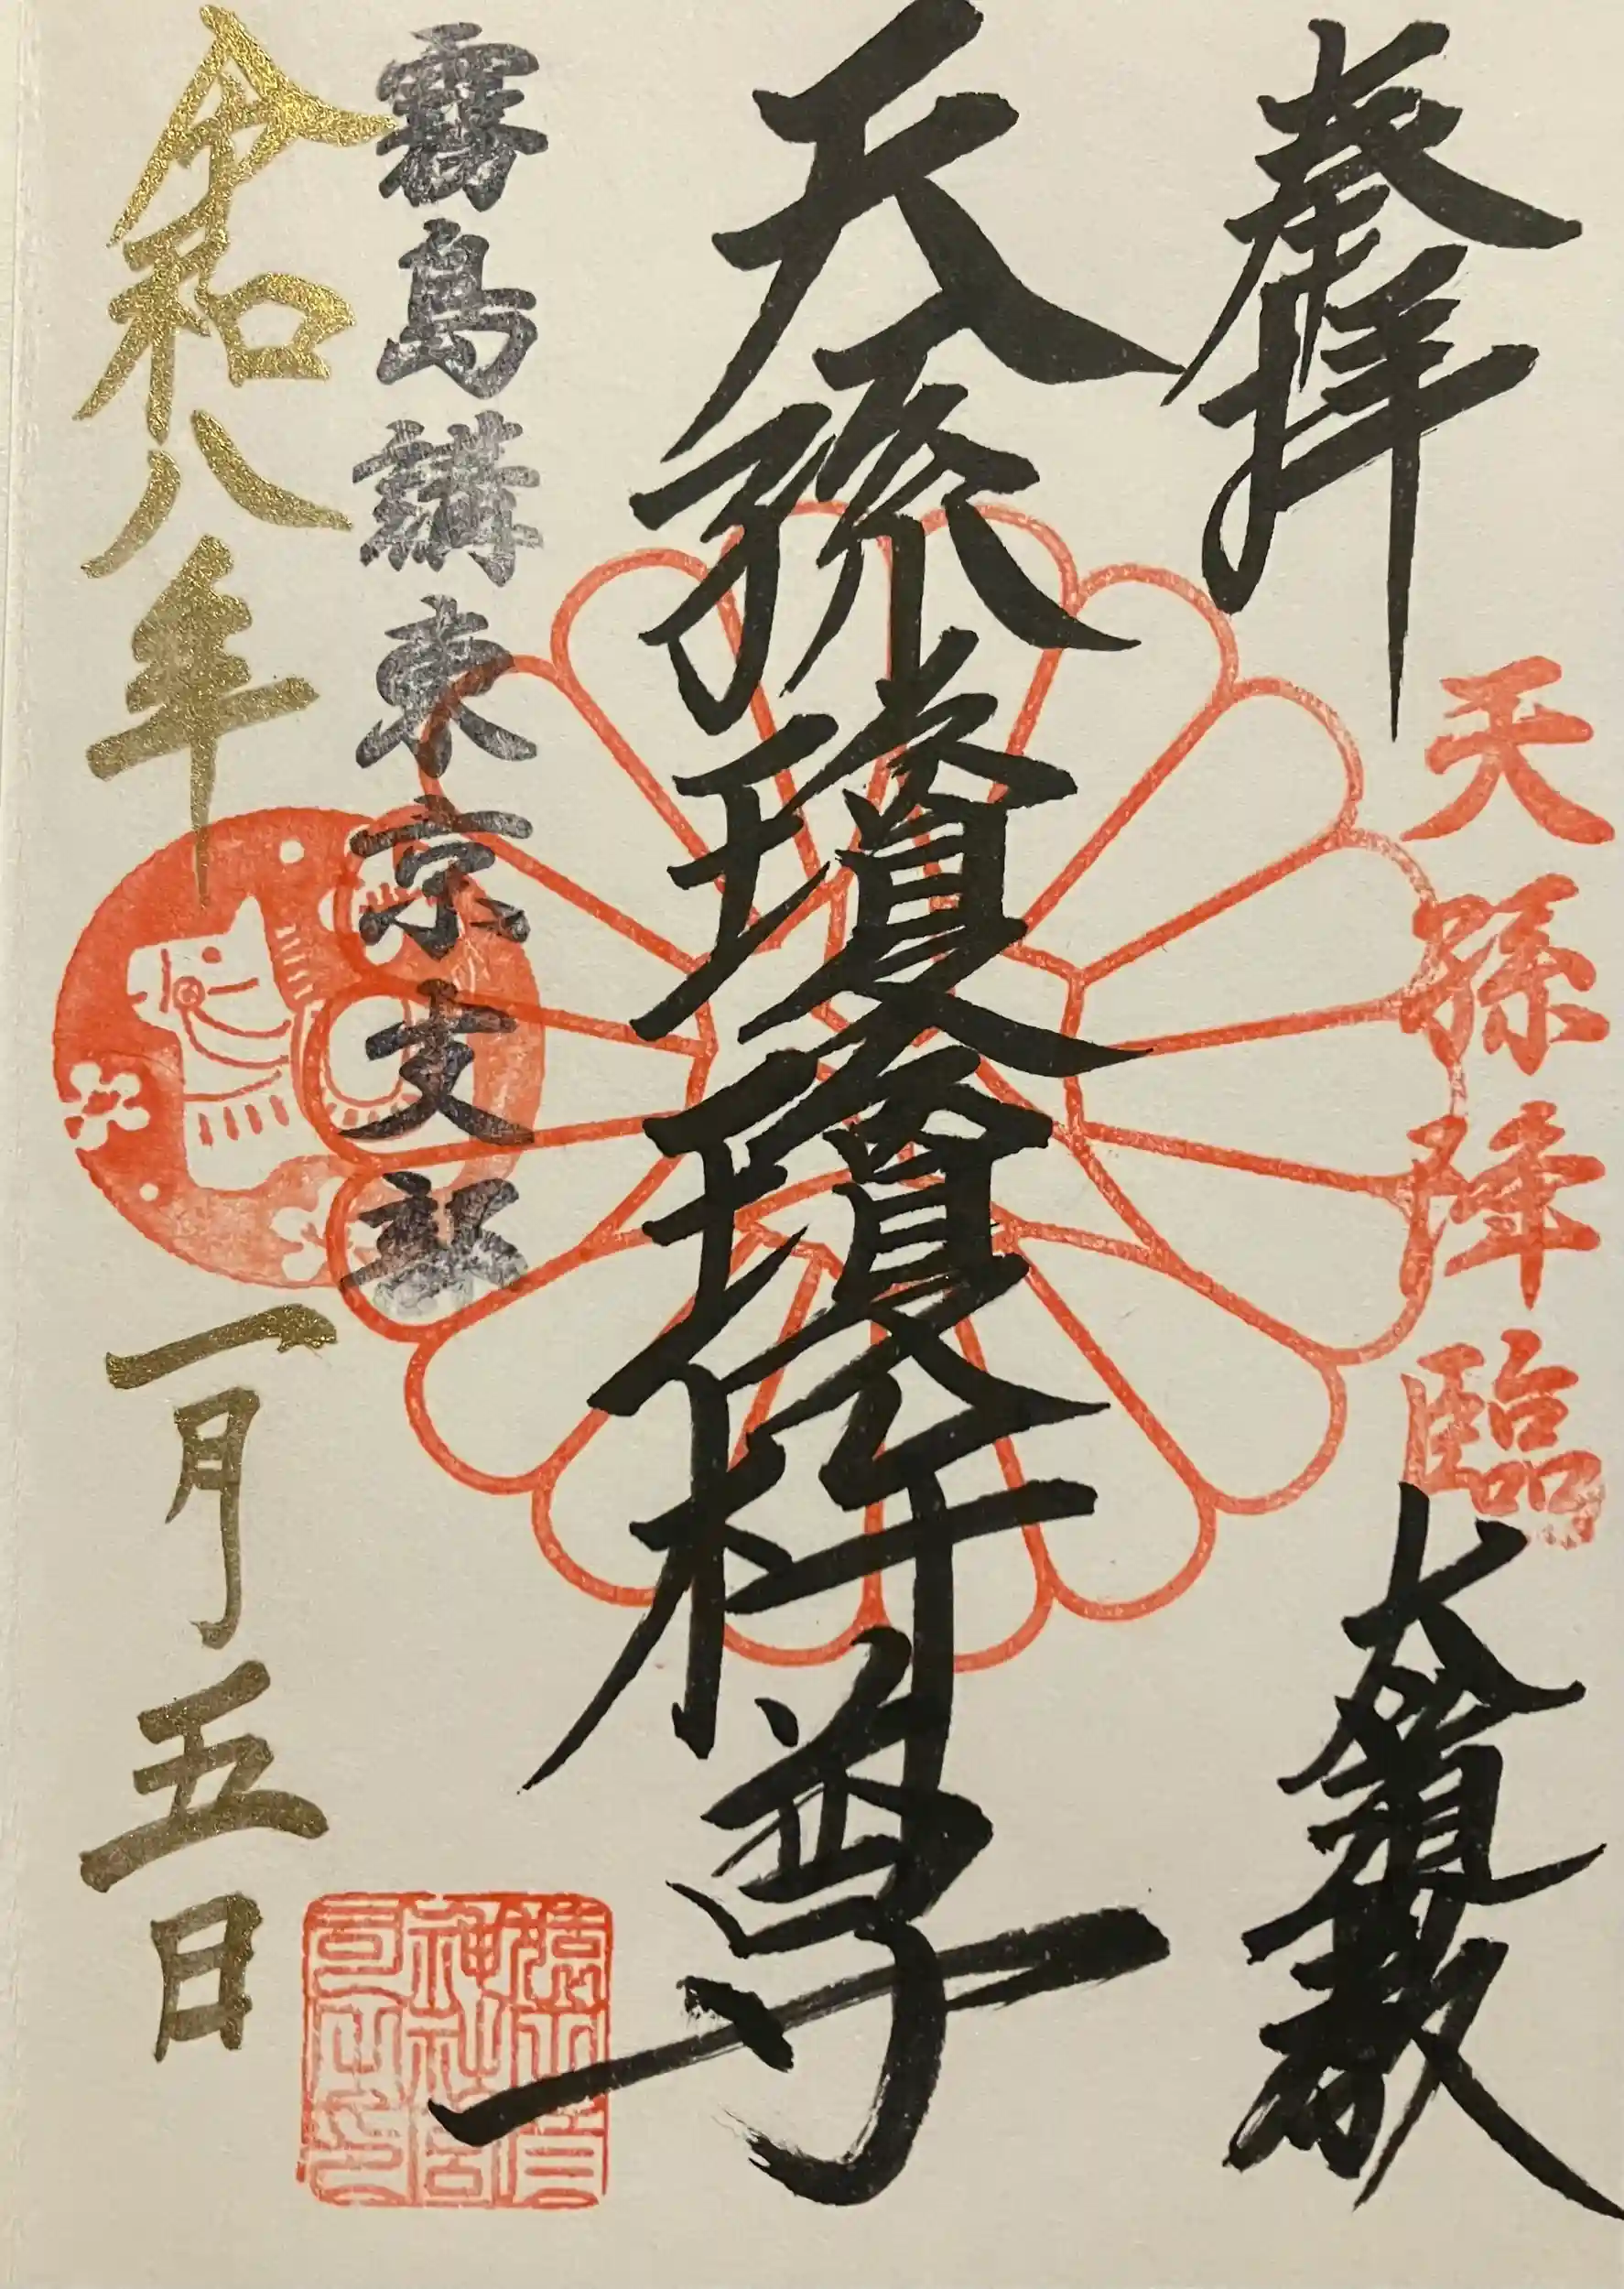 奉拝
天孫降臨
天孫瓊瓊杵尊
霧島講東京支部
令和八年一月五日